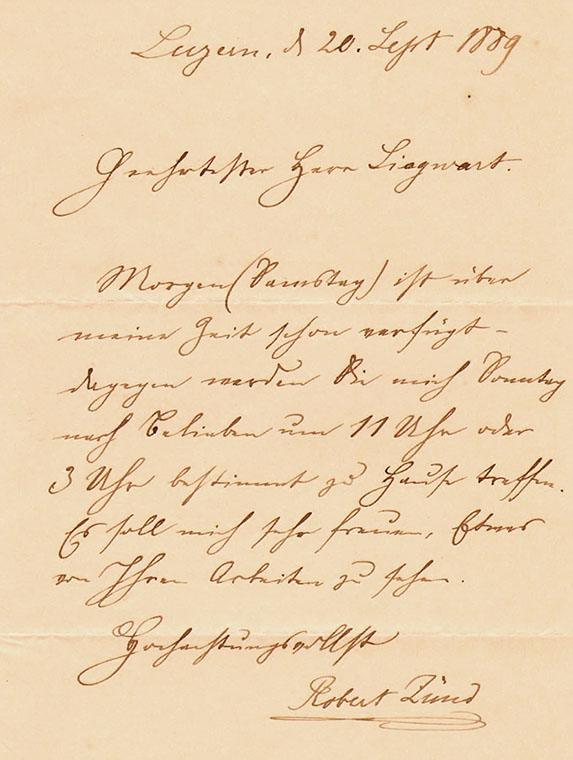 Luzern, d 20. Sept 1889
Geehrtester Herr Siegwart.
Morgen (Samstag) ist über
meine Zeit schon verfügt –
dagegen werden Sie mich Sonntag
nach Belieben um 11 Uhr oder
3 Uhr bestimmt zu Hause treffen.
Es soll mich sehr freuen, Etwas
von Ihren Arbeiten zu sehen.
Hochachtungsvollst
Robert Zünd